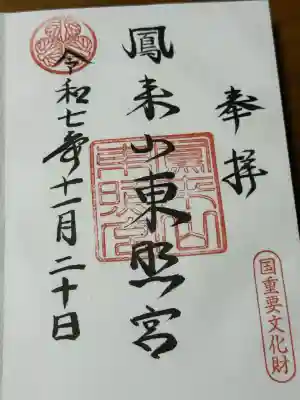 奉拝
鳳来山東照宮
令和七年十一月二十日
国重要文化財